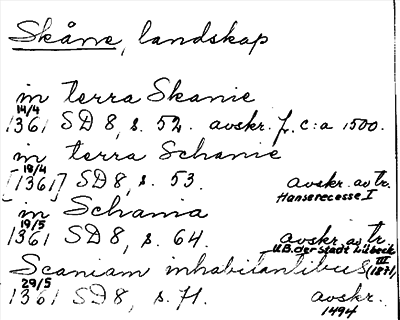 Skåne, landskap
in terra Skanie
14/4
1361 SD 8, s. 52. avskr. f. c:a 1500.
in terra Schanie
18/4
[1361] SD 8, s. 53. avskr. av tr.
Hanserecesse I
in Schania
19/5
1361 SD 8, s. 64. avskr. av tr.
U.B. der Stadt Lübeck
III
Scaniam inhabitantibus (1871)
29/5
1361 SD 8, s. 71. avskr.
1494